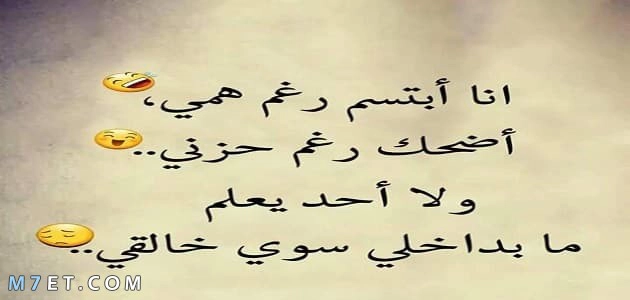 انا أبتسم رغم همي، 🤣
أضحك رغم حزني.. 😄
ولا أحد يعلم
ما بداخلي سوي خالقي.. 😔
M7ET.COM